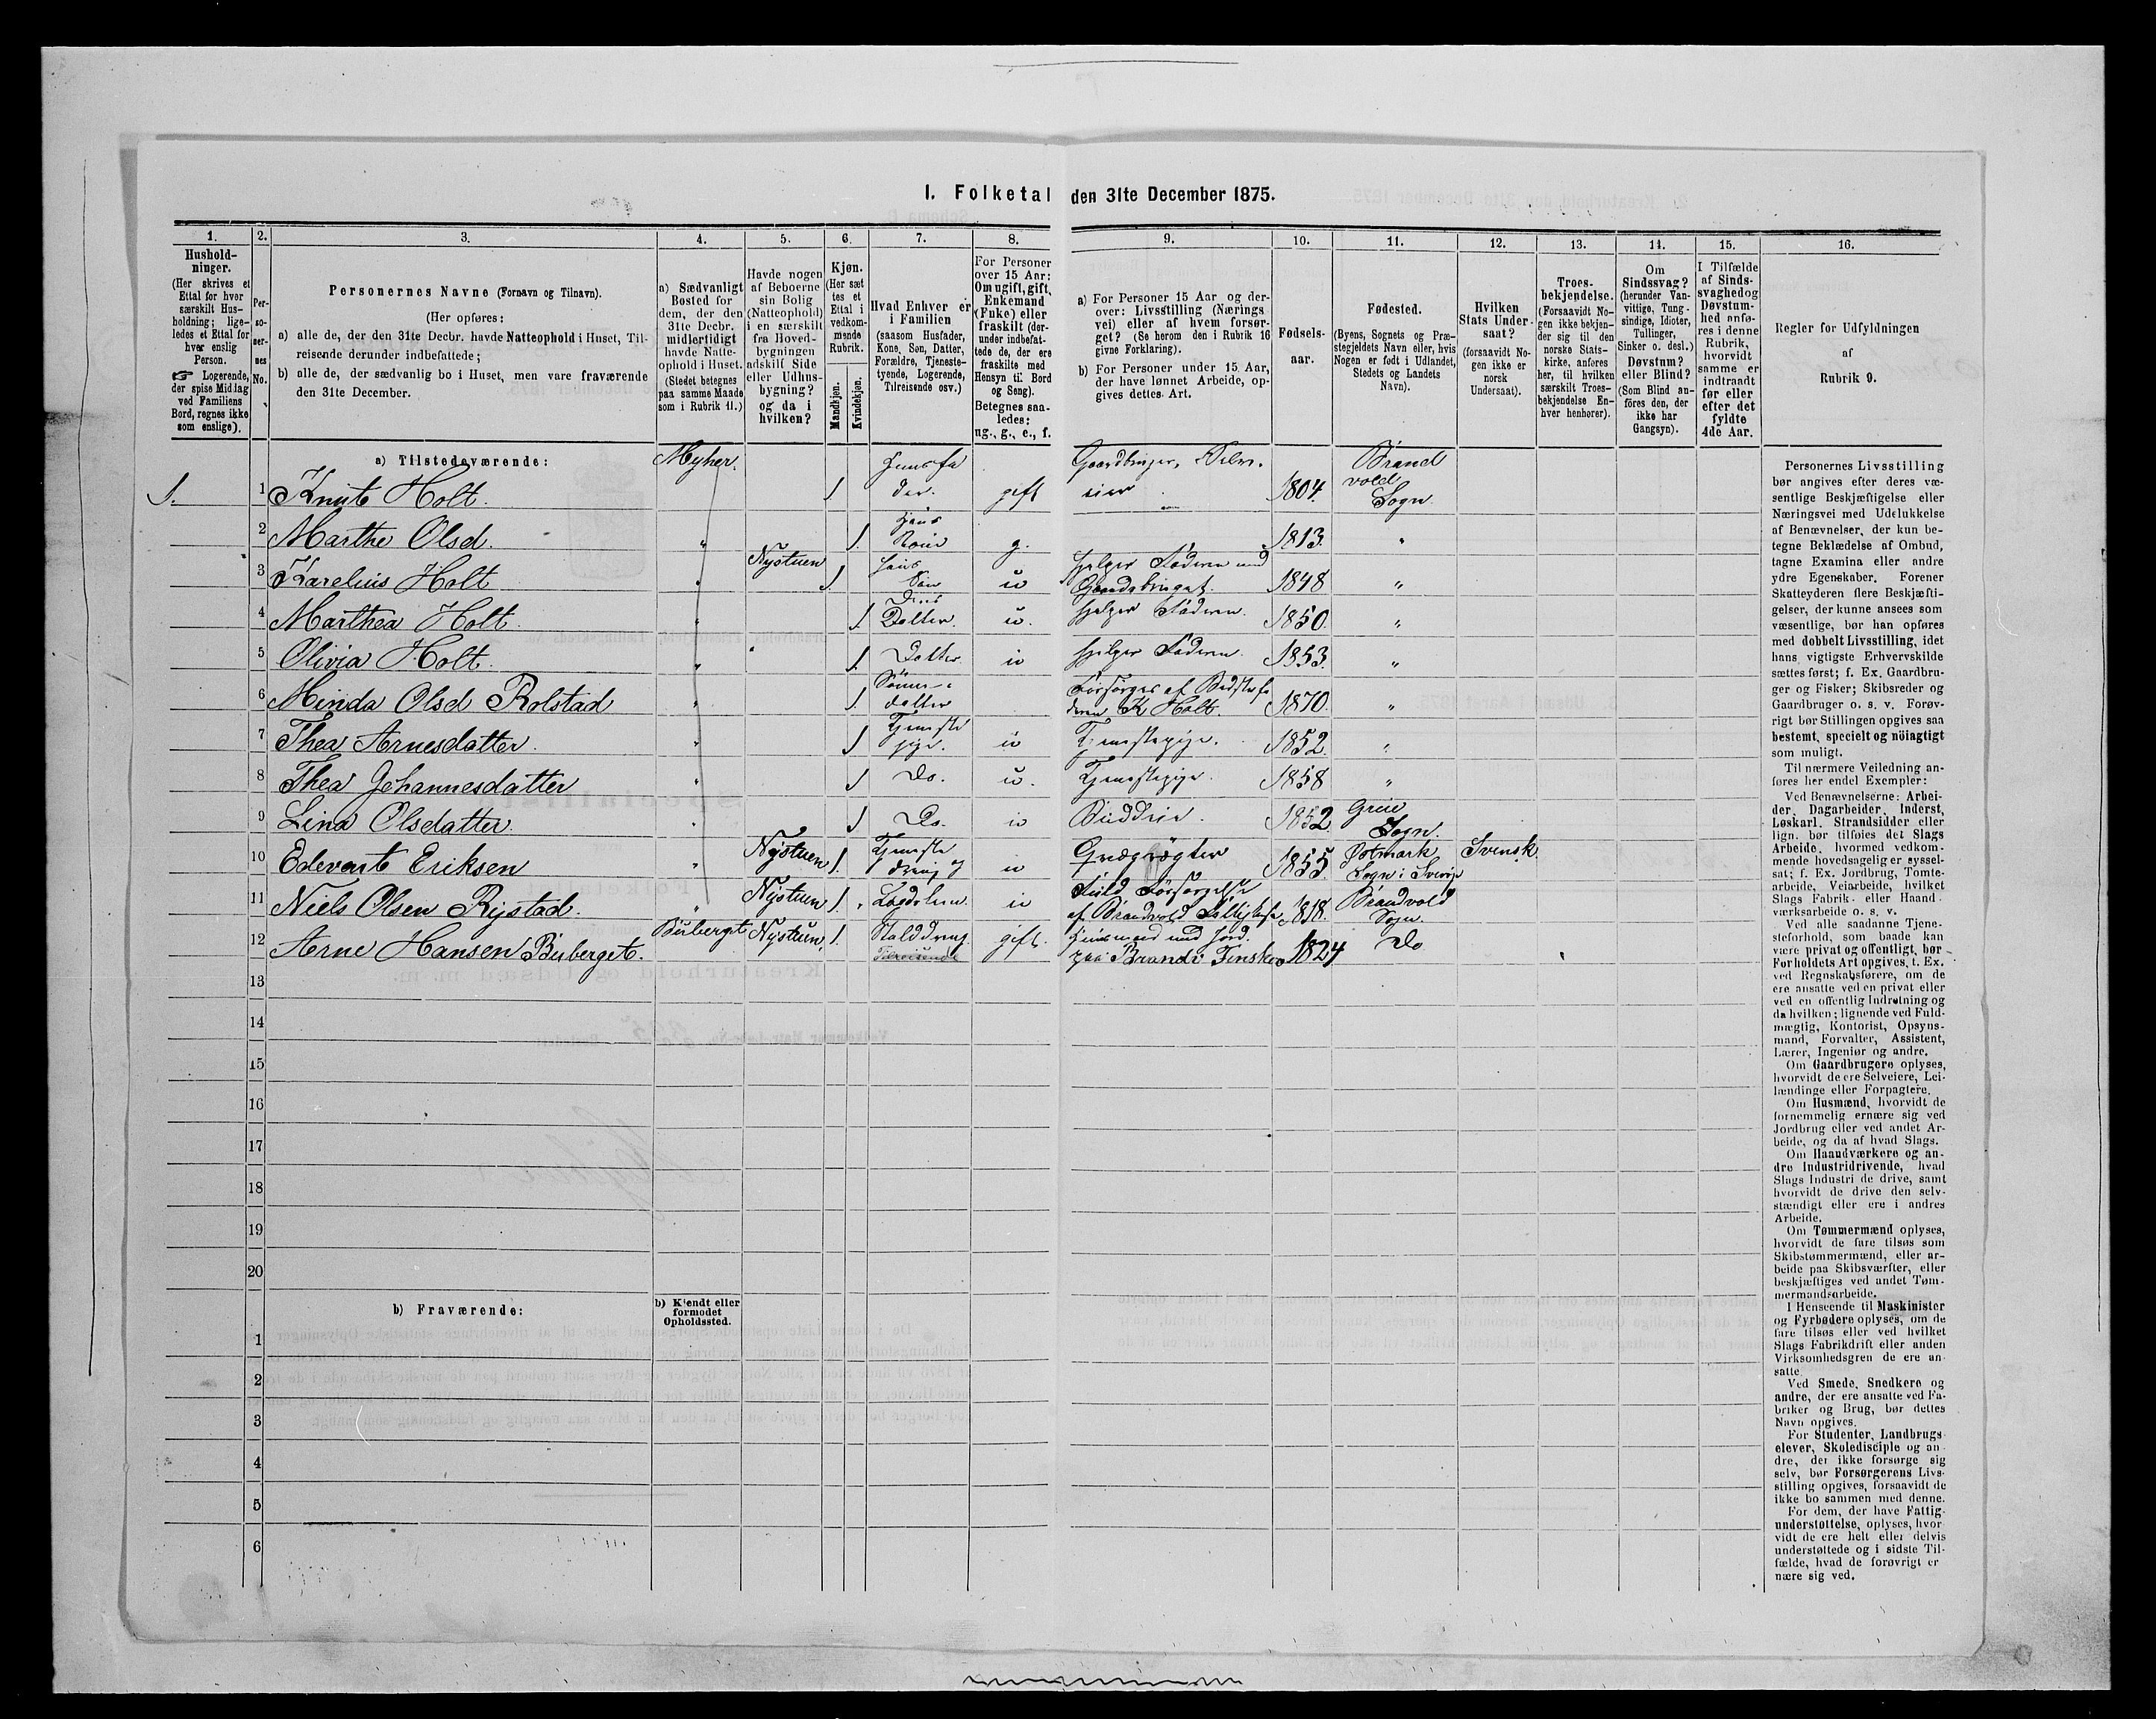 I. Folketal den 31te December 1875.
1. 2. 3. 4. 5. 6. 7. 8. 9. 10. 11. 12. 13. 14. 15. 16.
Hushold-
ninger.
(Her skrives et
Ettal for hver
særskilt Hus-
holdning; lige-
ledes et Ettal for
hver enslig
Person.
☞ Logerende,
der spise Middag
ved Familiens
Bord, regnes ikke
som enslige).
Per-
so-
ner-
nes
No.
Personernes Navne (Fornavn og Tilnavn).
(Her opføres:
a) alle de, der den 31te Decbr. havde Natteophold i Huset, Til-
reisende derunder indbefattede;
b) alle de, der sædvanlig bo i Huset, men vare fraværende
den 31te December.
a) Sædvanligt
Bosted for
dem, der den
31te Decbr.
midlertidigt
havde Natte-
ophold i Huset.
(Stedet betegnes
paa samme Maade
som i Rubrik 11.)
Havde nogen
af Beboerne
sin Bolig
(Natteophold)
i en særskilt
fra Hoved-
bygningen
adskilt Side
eller Udhus-
bygning?
og da i
hvilken?
Kjøn.
(Her sæt
tes et
Ettal i
vedkom-
mende
Rubrik.
Mandkjøn.
Kvindekjøn.
Hvad Enhver er
i Familien
(saasom Husfader,
Kone, Søn, Datter,
Forældre, Tjeneste-
tyende, Logerende,
Tilreisende osv.)
For Personer
over 15 Aar:
Om ugift, gift,
Enkemand
(Enke) eller
fraskilt (der-
under indbefat-
tede de, der ere
fraskilte med
Hensyn til Bord
og Seng).
Betegnes saa-
ledes:
ug., g., e., f.
a) For Personer 15 Aar og der-
over: Livsstilling (Nærings
vei) eller af hvem forsør-
get? (Se herom den i Rubrik 16
givne Forklaring).
b) For Personer under 15 Aar,
der have lønnet Arbeide, op-
gives dettes Art.
Fødsels-
aar.
Fødested.
(Byens, Sognets og Præ-
stegjeldets Navn eller, hvis
Nogen er født i Udlandet,
Stedets og Landets
Navn).
Hvilken
Stats Under-
saat?
(forsaavidt No-
gen ikke er
norsk
Undersaat).
Troes-
bekjendelse.
(Forsaavidt No-
gen ikke bekjen-
der sig til den
norske Stats-
kirke, anføres
her, til hvilken
særskilt Troes-
bekjendelse En-
hver henhører).
Om
Sindssvag?
(herunder Van-
vittige, Tung-
sindige, Idioter,
Tullinger,
Sinker o. desl.)
Døvstum?
eller Blind?
(Som Blind an-
føres den, der
ikke har
Gangsyn).
I Tilfælde
af Sinds-
svaghed og
Døvstum-
hed anfø-
res i denne
Rubrik,
hvorvidt
samme er
indtraadt
før eller
efter det
fyldte
4de Aar.
Regler for Udfyldningen
af
Rubrik 9.
a) Tilstedeværende:
1. 1 Knut Holt. Myher. 1 Huusfa der. gift Gaardbruger, Selv. eier 1804. Brand vold Sogn.
2 Marthe Olsd. " 1. Hans Kone g. 1813. "
3 Karelius Holt " Nystuen 1. Hans Søn u Hjelper Faderen med Gaardsbruget. 1848 "
4 Marthea Holt " 1. Dere Datter. u. Hjelper Faderen. 1850. "
5 Olivia Holt. " 1. Datter u Hjelper Faderen. 1853. "
6 Minda Olsd Rolstad " 1. Sønne- datter Forsørges af Bedstefa deren K Holt. 1870. "
7 Thea Arnesdatter. " 1 Tjeneste pige. u Tjenestepige. 1852. "
8 Thea Johannesdatter " 1 Do. u. Tjenestepige. 1858 "
9 Lina Olsdatter. " 1 Do. u Buddeie. 1852. Grue Sogn.
10 Edevart Eriksen " Nystuen 1. Tjeneste dreng u 1855. Østmark Sogn i Sverige Svensk.
11 Niels Olsen Rystad. " Nystuen 1. Lægdslem. u Fuld Forsørgelse af Brandvold 1818. Brandvold Sogn.
12 Arne Hansen Buberget. Buberget Nystuen, 1. Stalddreng Tilreisende gift. Huusmand med Jord. paa Brands Finskov 1824 Do
13
14
15
16
17
18
19
20
b) Fraværende:
b) Kjendt eller
formodet
Opholdssted.
1
2
3
4
5
6
Personernes Livsstilling
bør angives efter deres væ-
sentlige Beskjæftigelse eller
Næringsvei med Udelukkelse
af Benævnelser, der kun be-
tegne Beklædelse af Ombud,
tagne Examina eller andre
ydre Egenskaber. Forener
Skatteyderen flere Beskjæfti-
gelser, der kunne ansees som
væsentlige, bør han opføres
med dobbelt Livsstilling, idet
hans vigtigste Erhvervskilde
sættes først; f. Ex. Gaardbru-
ger og Fisker; Skibsreder og
Gaardbruger o. s. v. Forøv-
rigt bør Stillingen opgives saa
bestemt, specielt og nöiagtigt
som muligt.
Til nærmere Veiledning an-
føres her endel Exempler:
Ved Benævnelserne: Arbei-
der, Dagarbeider, Inderst,
Løskarl, Strandsidder eller
lign. bør tilføies det Slags
Arbeide, hvormed vedkom-
mende hovedsagelig er syssel-
sat; f. Ex. Jordbrug, Tomte-
arbeide, Veiarbeide, hvilket
Slags Fabrik- eller Haand-
værksarbeide o. s. v.
Ved alle saadanne Tjene-
steforhold, som baade kan
være privat og offentligt, bør
Forholdets Art opgives, t. Ex.
ved Regnskabsførere, om de
ere ansatte ved en privat eller
ved en offentlig Indretning og
da hvilken; lignende ved Fuld-
mægtig, Kontorist, Opsyns-
mand, Forvalter, Assistent,
Lærer, Ingeniør og andre.
Om Gaardbrugere oplyses,
hvorvidt de ere Selveiere, Lei-
lændinge eller Forpagtere.
Om Husmænd, hvorvidt de
fornemmelig ernære sig ved
Jordbrug eller ved andet Ar-
beide, og da af hvad Slags.
Om Haandværkere og an-
dre Industridrivende, hvad
Slags Industri de drive, samt
hvorvidt de drive den selv-
stændigt eller ere i andres
Arbeide.
Om Tømmermænd oplyses,
hvorvidt de fare tilsøs som
Skibstømmermænd, eller ar-
beide paa Skibsværfter, eller
beskjæftiges ved andet Tøm-
mermandsarbeide.
I Henseende til Maskinister
og Fyrbødere oplyses, om de
fare tilsøs eller ved hvilket
Slags Fabrikdrift eller anden
Virksomhedsgren de ere an-
satte.
Ved Smede, Snedkere og
andre, der ere ansatte ved Fa-
briker og Brug, bør dettes
Navn opgives.
For Studenter, Landbrugs-
elever, Skoledisciple og an-
dre, der ikke forsørge sig
selv, bør Forsørgerens Livs-
stilling opgives, forsaavidt de
ikke bo sammen med denne.
For dem, der have Fattig-
understøttelse, oplyses, hvor-
vidt de ere helt eller delvis
understøttede og i sidste Til-
fælde, hvad de forøvrigt er-
nære sig ved.